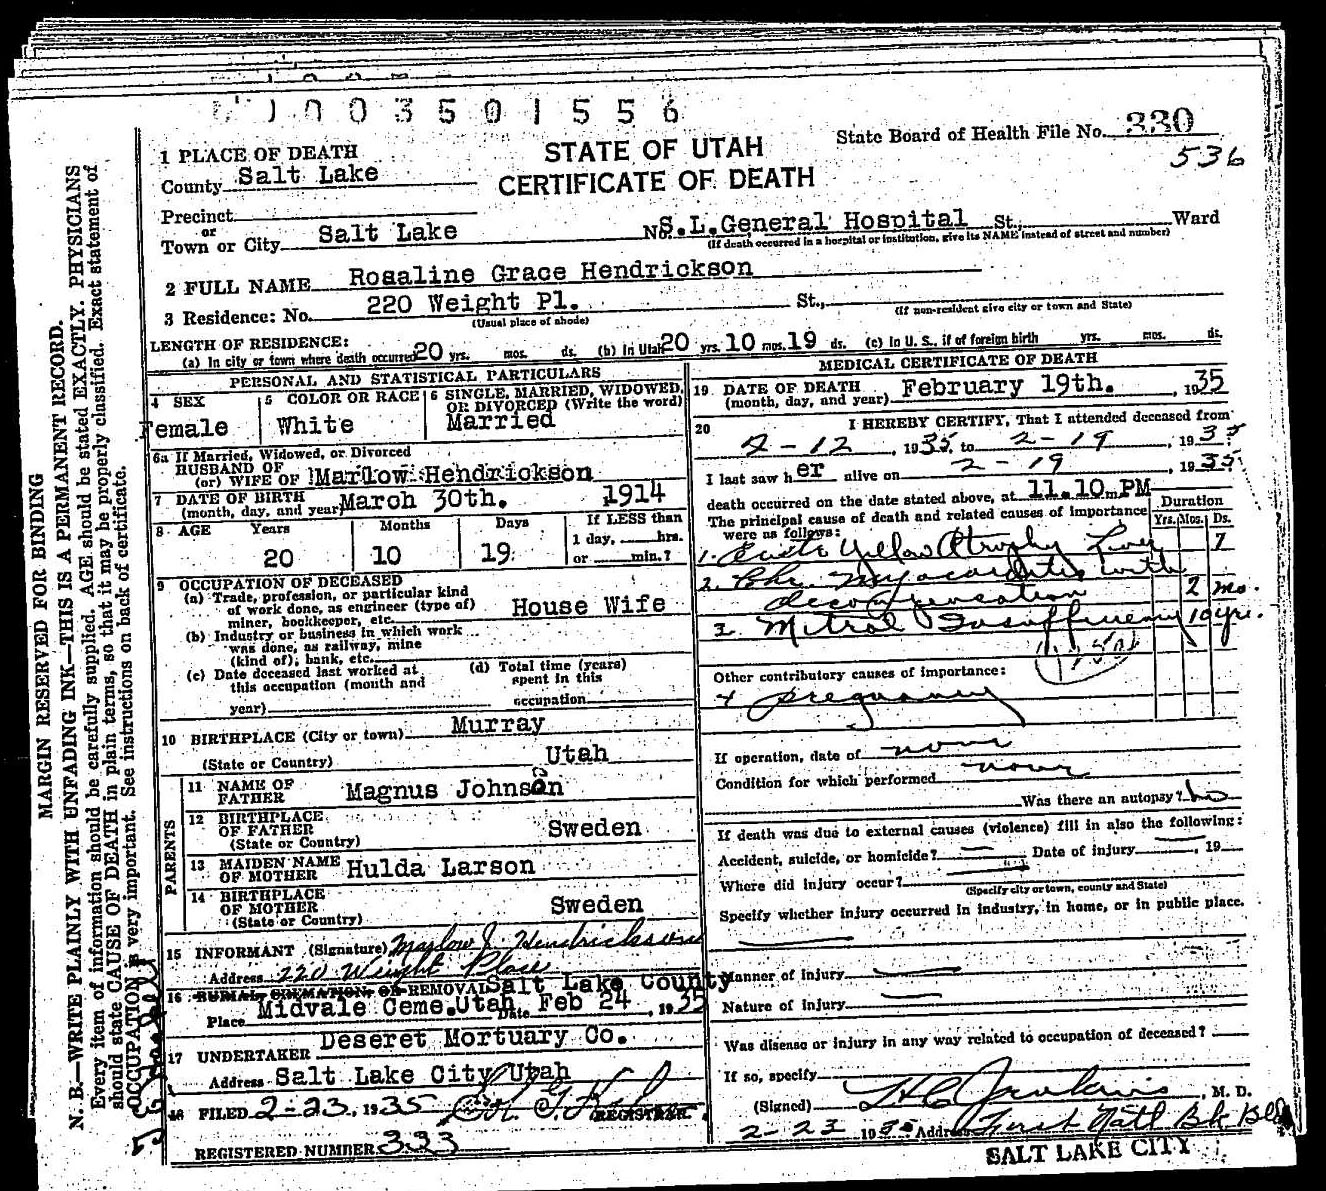 1003501556
State Board of Health File No. 330
536
STATE OF UTAH
CERTIFICATE OF DEATH
1 PLACE OF DEATH
County Salt Lake
Precinct
or
Town or City Salt Lake No. S.L.General Hospital St., Ward
(If death occurred in a hospital or institution, give its NAME instead of street and number)
2 FULL NAME Rosaline Grace Hendrickson
3 Residence: No. 220 Weight Pl. St.,
(Usual place of abode) (If non-resident give city or town and State)
LENGTH OF RESIDENCE:
(a) In city or town where death occurred 20 yrs. mos. ds. (b) In Utah 20 yrs. 10 mos. 19 ds. (c) In U. S., if of foreign birth yrs. mos. ds.
PERSONAL AND STATISTICAL PARTICULARS
4 SEX
Female
5 COLOR OR RACE
White
6 SINGLE, MARRIED, WIDOWED,
OR DIVORCED (Write the word)
Married
6a If Married, Widowed, or Divorced
HUSBAND OF
(or) WIFE OF Marlow Hendrickson
7 DATE OF BIRTH
(month, day, and year) March 30th. 1914
8 AGE Years Months Days If LESS than
1 day, hrs.
20 10 19 or min.?
9 OCCUPATION OF DECEASED
(a) Trade, profession, or particular kind
of work done, as engineer (type of)
miner, bookkeeper, etc. House Wife
(b) Industry or business in which work
was done, as railway, mine
(kind of); bank, etc.
(c) Date deceased last worked at
this occupation (month and
year)
(d) Total time (years)
spent in this
occupation
10 BIRTHPLACE (City or town) Murray
(State or Country) Utah
PARENTS
11 NAME OF
FATHER Magnus Johnson
12 BIRTHPLACE
OF FATHER
(State or Country) Sweden
13 MAIDEN NAME
OF MOTHER Hulda Larson
14 BIRTHPLACE
OF MOTHER
(State or Country) Sweden
15 INFORMANT (Signature) Marlow J. Hendrickson
Address 220 Weight Place
16 BURIAL, CREMATION, OR REMOVAL Salt Lake County
Place Midvale Ceme.Utah Date Feb 24, 1935
17 UNDERTAKER Deseret Mortuary Co.
Address Salt Lake City Utah
18 FILED 2-23, 1935
REGISTRAR.
REGISTERED NUMBER 333
MEDICAL CERTIFICATE OF DEATH
19 DATE OF DEATH
(month, day, and year) February 19th. , 1935
20 I HEREBY CERTIFY, That I attended deceased from
2-12, 1935, to 2-19, 1935
I last saw her alive on 2-19, 1935
death occurred on the date stated above, at 11.10 m PM
The principal cause of death and related causes of importance
were as follows:
Duration
Yrs. Mos. Ds.
1. Acute Yellow Atrophy Liver 7
2. Chr. Myocarditis with
decompensation 2 mo.
3. Mitral Insufficiency 10 yrs.
Other contributory causes of importance:
4 pregnancy
If operation, date of none
Condition for which performed none
Was there an autopsy? No
If death was due to external causes (violence) fill in also the following:
Accident, suicide, or homicide? — Date of injury —, 19
Where did injury occur?
(Specify city or town, county and State)
Specify whether injury occurred in industry, in home, or in public place.
—
Manner of injury —
Nature of injury —
Was disease or injury in any way related to occupation of deceased? —
If so, specify
(Signed) H C Jenkins, M. D.
2-23 1935 Address First Natl Bk Bld
SALT LAKE CITY
MARGIN RESERVED FOR BINDING
N. B.—WRITE PLAINLY WITH UNFADING INK—THIS IS A PERMANENT RECORD.
Every item of information should be carefully supplied. AGE should be stated EXACTLY. PHYSICIANS
should state CAUSE OF DEATH in plain terms, so that it may be properly classified. Exact statement of
OCCUPATION is very important. See instructions on back of certificate.